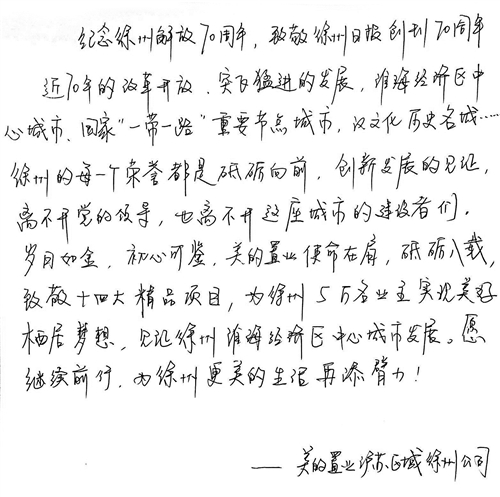 纪念徐州解放70周年，致敬徐州日报创刊70周年
近70年的改革开放、突飞猛进的发展，淮海经济区中
心城市、国家"一带一路"重要节点城市，汉文化历史名城……
徐州的每一个荣誉都是砥砺向前，创新发展的见证，
离不开党的领导，也离不开这座城市的建设者们。
岁月如金，初心可鉴，美的置业使命在肩，砥砺八载，
致敬十四大精品项目，为徐州5万名业主实现美好
栖居梦想，见证徐州淮海经济区中心城市发展。愿
继续前行，为徐州更美的生活再添臂力！
——美的置业沪苏区域徐州公司